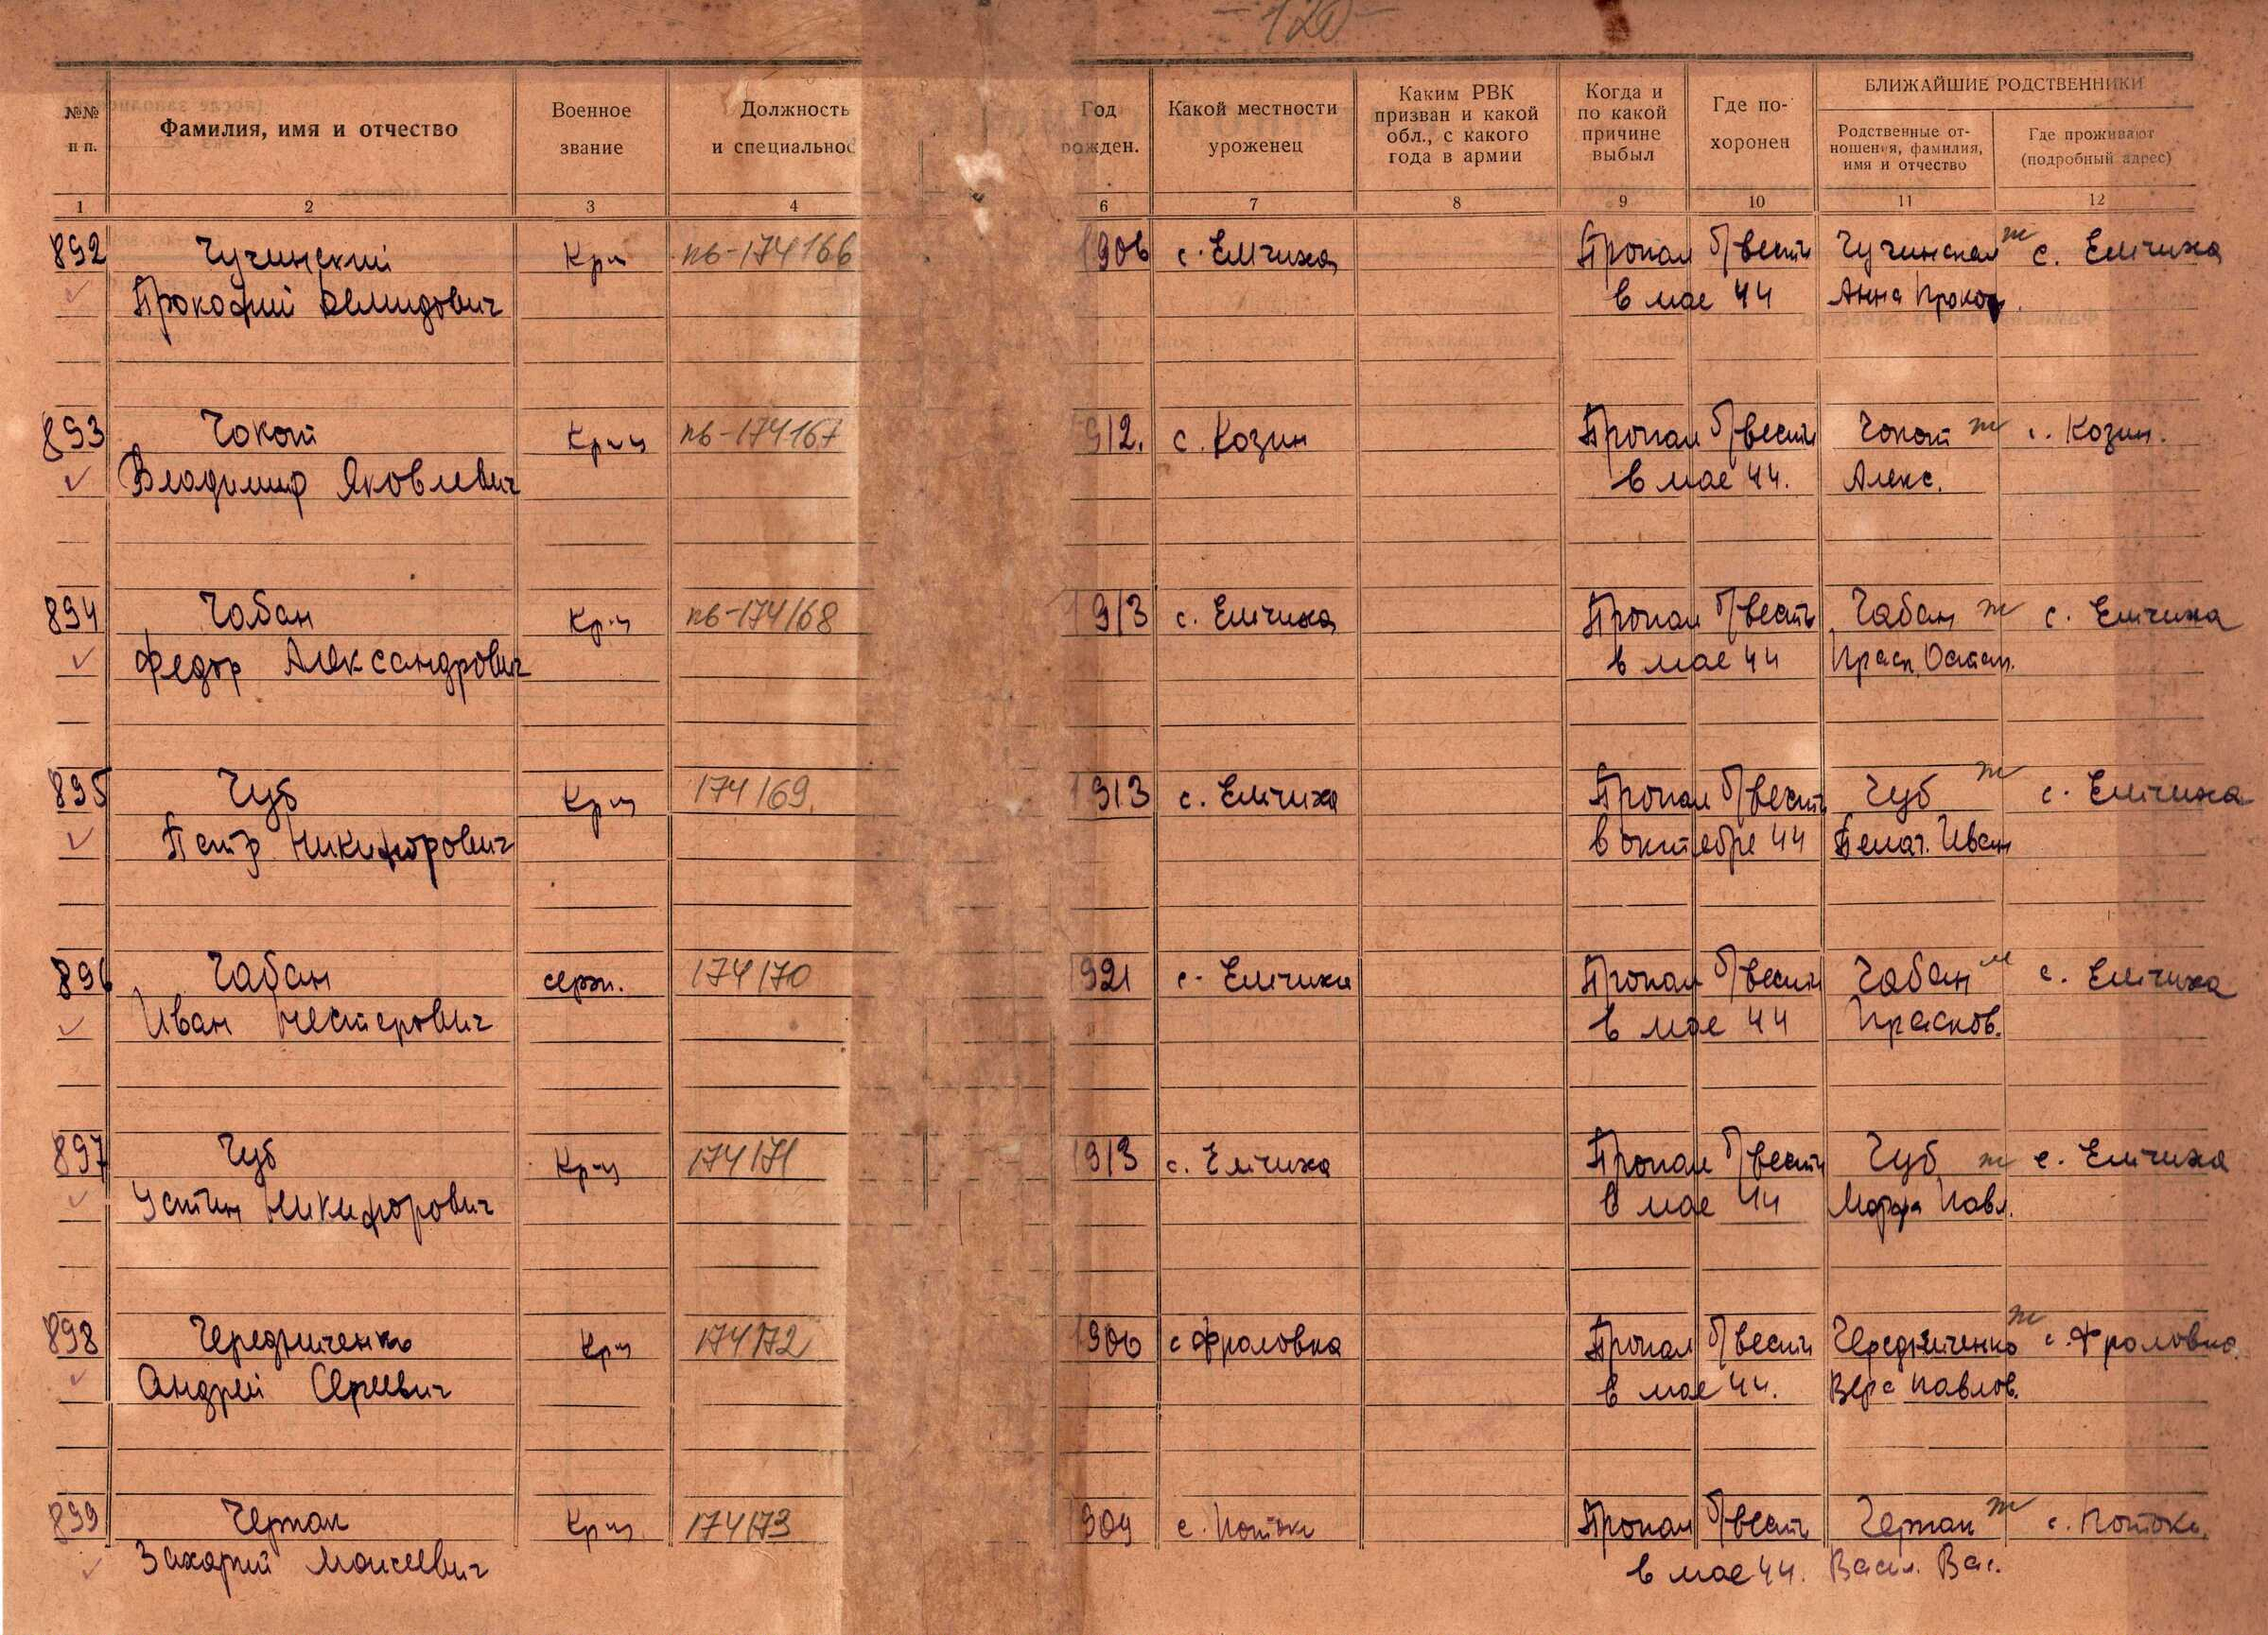 -120-
№№ п п.
Фамилия, имя и отчество
Военное звание
Должность и специальнос
Год рожден.
Какой местности уроженец
Каким РВК призван и какой обл., с какого года в армии
Когда и по какой причине выбыл
Где по-хоронен
БЛИЖАЙШИЕ РОДСТВЕННИКИ
Родственные от-ношения, фамилия, имя и отчество
Где проживают (подробный адрес)
1 2 3 4 6 7 8 9 10 11 12
892 Чучинский Кр-ц пв-174166 1906 с. Емчиха Пропал б/вест Чучинская ж с. Емчиха
Прокофий Демидович в мае 44 Анна Прокоф.
893 Чокот Кр-ц пв-174167 912. с. Козин Пропал б/вести Чокот ж с. Козин.
Владимир Яковлевич в мае 44. Алекс.
894 Чабан Кр-ц пв-174168 1913 с. Емчиха Пропал б/вест Чабан ж с. Емчиха
Федор Александрович в мае 44 Праск. Остап.
895 Чуб Кр-ц 174169 1913 с. Емчиха Пропал б/вест Чуб ж с. Емчиха
Петр Никифорович в октебре 44 Иван
896 Чабан серж. 174170 921 с. Емчиха Пропал б/вести Чабан м с. Емчиха
Иван Нестерович в мае 44 Прасков.
897 Чуб Кр-ц 174171 1913 с. Емчиха Пропал б/вести Чуб ж с. Емчиха
Устин Никифорович в мае 44 Марфа Павл.
898 Чередниченко Кр-ц 174172 1906 с Фроловка Пропал б/вести Чередниченко ж с. Фроловка.
Андрей Сергеевич в мае 44. Вера Павлов.
899 Черпак Кр-ц 174173 904 с. Потоки Пропал б/вест Черпак ж с. Потоки
Захарий Моисеевич в мае 44. Васил. Вас.